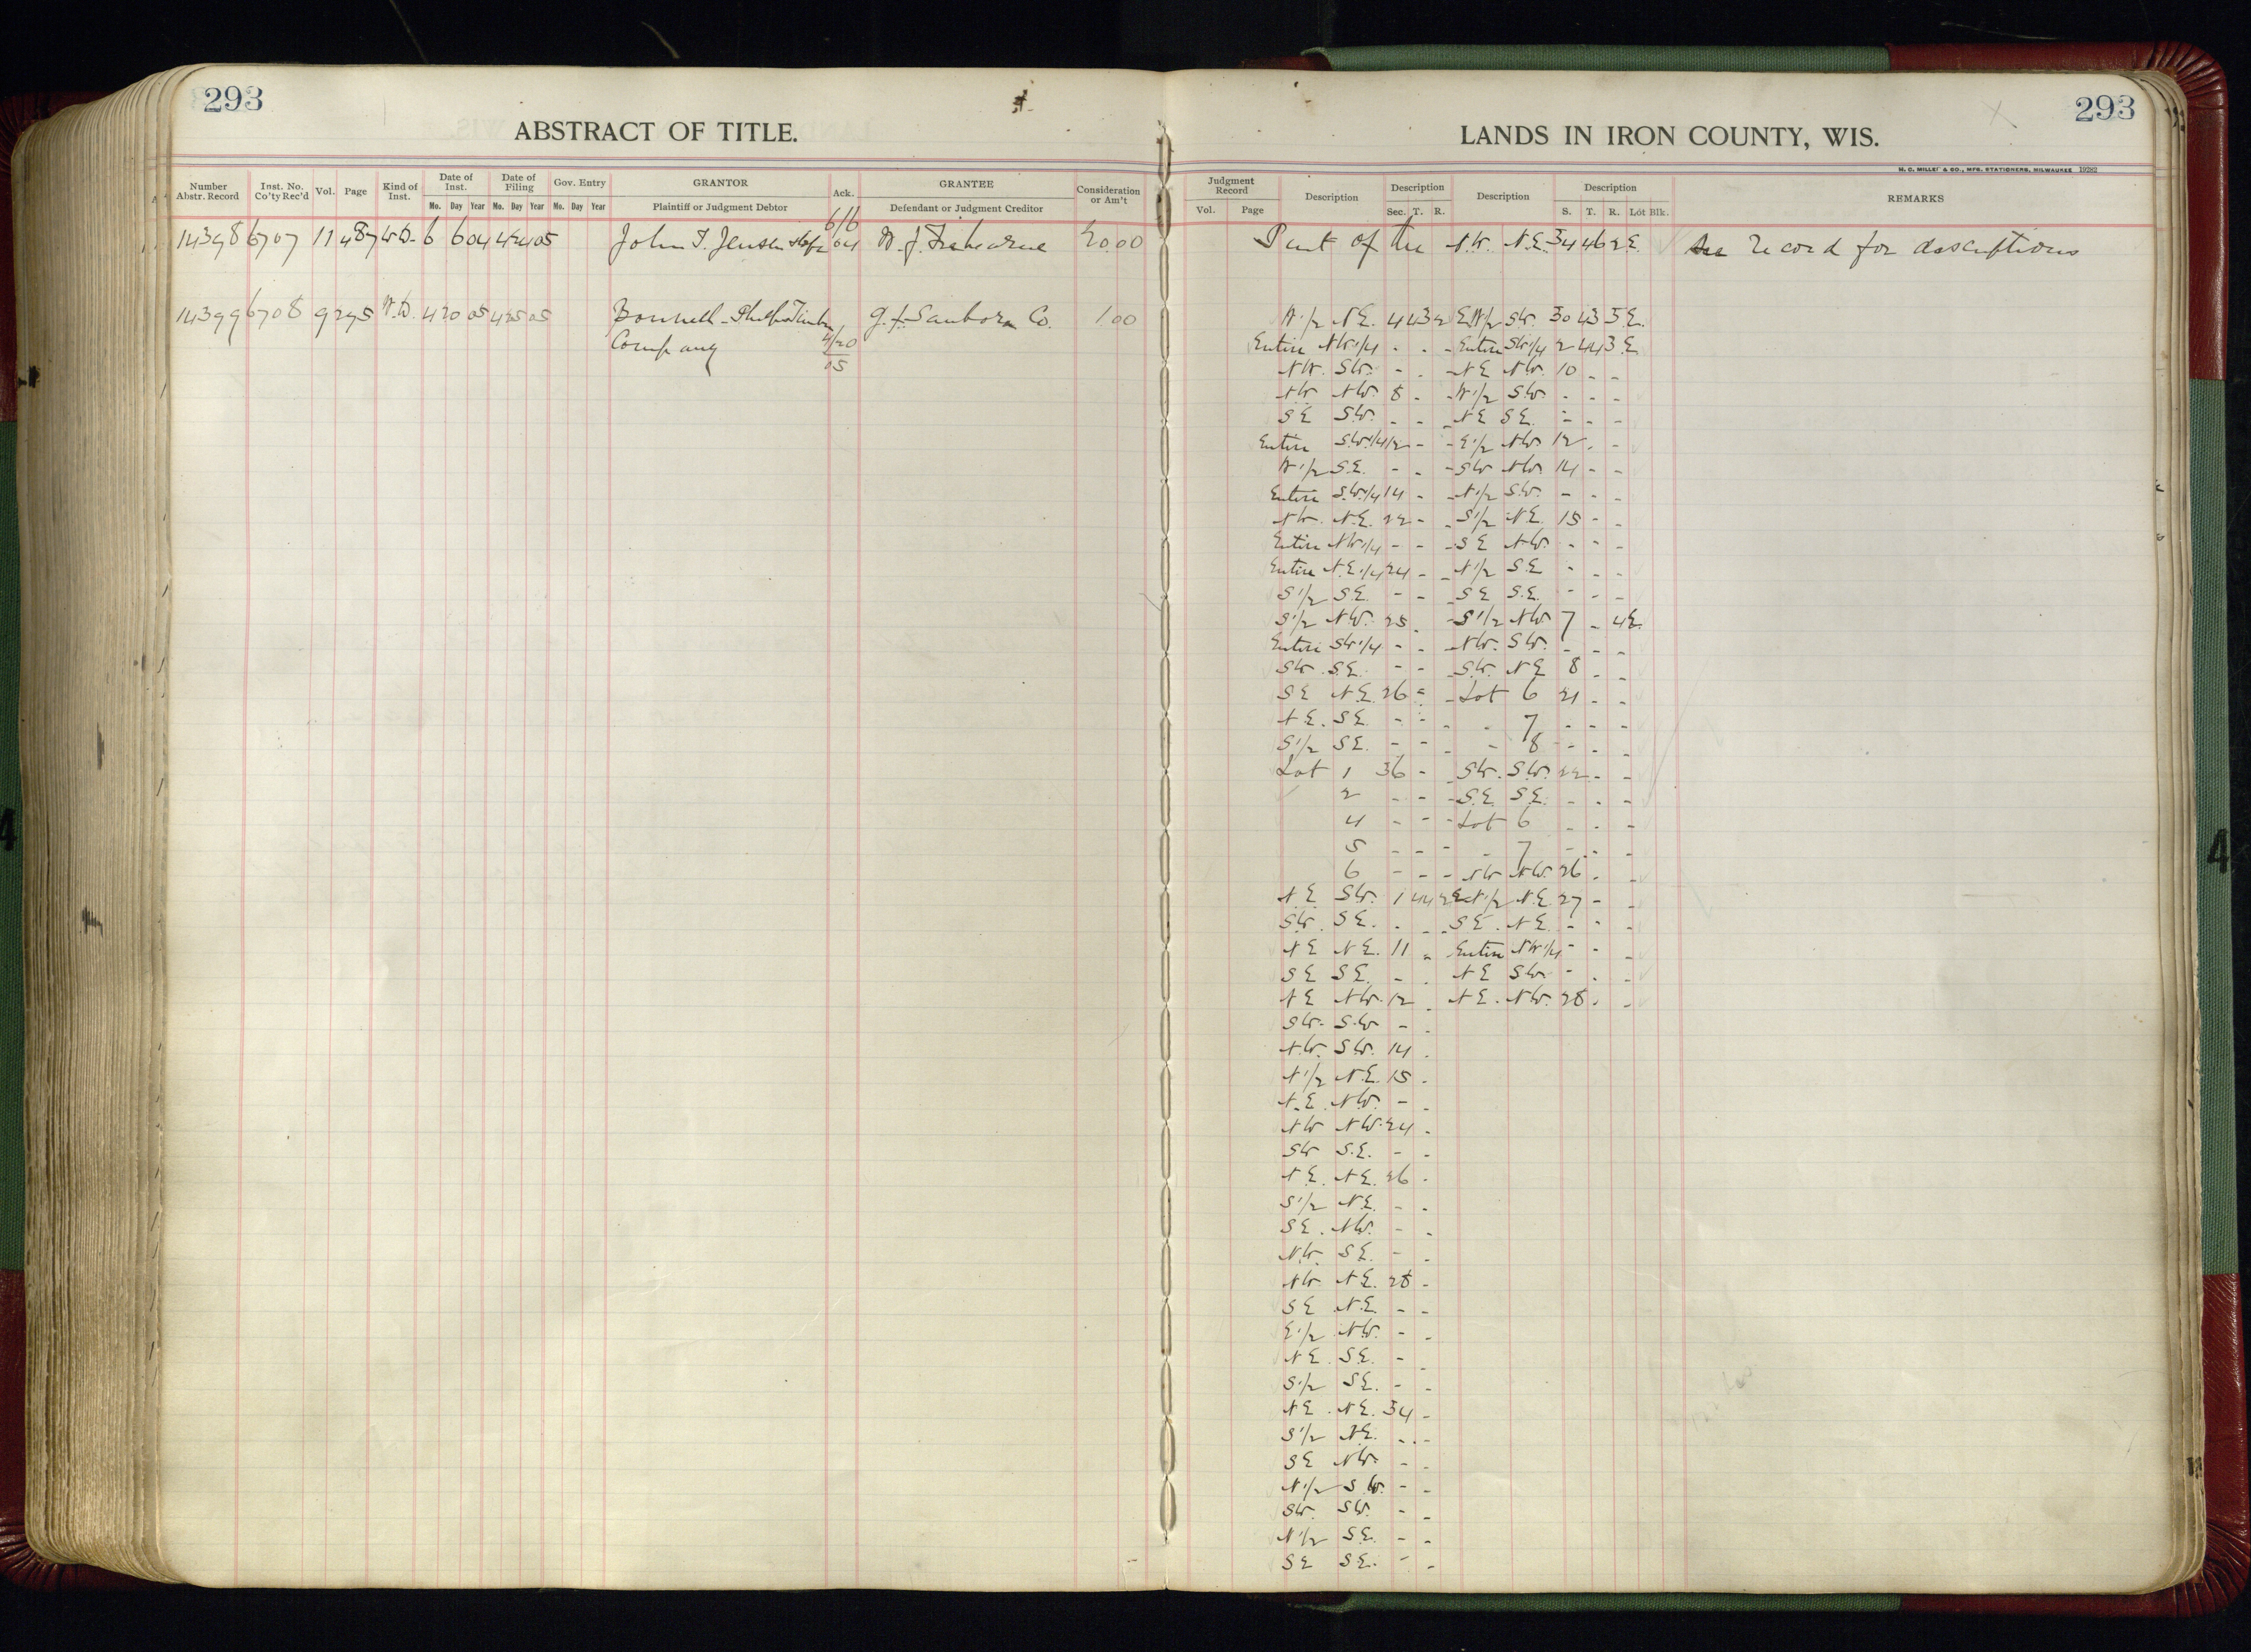 293
ABSTRACT OF TITLE.
Number Abstr. Record
Inst. No. Co'ty Rec'd
Vol.
Page
Kind of Inst.
Date of Inst.
Mo. Day Year
Date of Filing
Mo. Day Year
Gov. Entry
Mo. Day Year
GRANTOR
Plaintiff or Judgment Debtor
Ack.
GRANTEE
Defendant or Judgment Creditor
Consideration or Am't
14398 6707 11 487 W.D. 6 6 04 4 24 05 John T. Jensen 6/6 04 20.00
14399 6708 9 295 W.D. 4 20 05 4 25 05 Bonnell-Phelps Timber 4/20 05 G.F. Sanborn Co. 1.00
Company
293
LANDS IN IRON COUNTY, WIS.
H. C. MILLER & CO., MFG. STATIONERS, MILWAUKEE 19282
Judgment Record
Vol. Page
Description
Description
Sec. T. R.
Description
Description
S. T. R. Lot Blk.
REMARKS
Part of the N.W. N.E. 34 46 2 E. See record for descriptions
W 1/2 N.E. 4 43 2 E W 1/2 SW. 30 43 3 E.
Entire NW 1/4 - - - Entire SW 1/4 2 44 3 E
NW. SW. - - - NE NW. 10 - -
NW NW. 8 - - W 1/2 SW. - - -
SE SW. - - - NE SE. - - -
Entire SW 1/4 12 - - E 1/2 NW 12 - -
W 1/2 S.E. - - - SW NW. 14 - -
Entire S.W. 1/4 14 - - N 1/2 S.W. - - -
NW. N.E. 22 - - S 1/2 N.E. 15 - -
Entire NW 1/4 - - - SE NW. - - -
Entire N.E. 1/4 24 - - N 1/2 SE - - -
S 1/2 SE. - - - SE S.E. - - -
S 1/2 N.W. 25 - - S 1/2 NW 7 - 4 E.
Entire SW 1/4 - - - NW. SW. - - -
SW. SE. - - - SW. NE 8 - -
SE N.E. 26 - - Lot 6 21 - -
N.E. SE. - - - - 7 - - -
S 1/2 SE. - - - - 8 - - -
Lot 1 36 - - SW. S.W. 22 - -
2 - - - S.E. S.E. - - -
4 - - - Lot 6 - - -
5 - - - - 7 - - -
6 - - - NW NW. 26 - -
N.E. SW. 1 44 2 E N 1/2 N.E. 27 - -
SW. SE. - - - SE. N.E. - - -
NE NE. 11 - Entire NW 1/4 - - -
SE SE. - - NE SW - - -
NE NW. 12 - NE. NW. 28 - -
SW. S.W - -
N.W. SW. 14 -
N 1/2 N.E. 15 -
N.E. NW. - -
NW NW. 24 -
SW S.E. - -
N.E. N.E. 26 -
S 1/2 N.E. - -
SE. NW. - -
N.W SE. - -
NW. NE. 28 -
SE N.E. - -
E 1/2 NW. - -
NE. SE. - -
S 1/2 SE. - -
NE. NE. 34 -
S 1/2 NE. - -
SE NW. - -
N 1/2 S.W. - -
SW. SW. - -
N 1/2 SE. - -
SE SE. - -